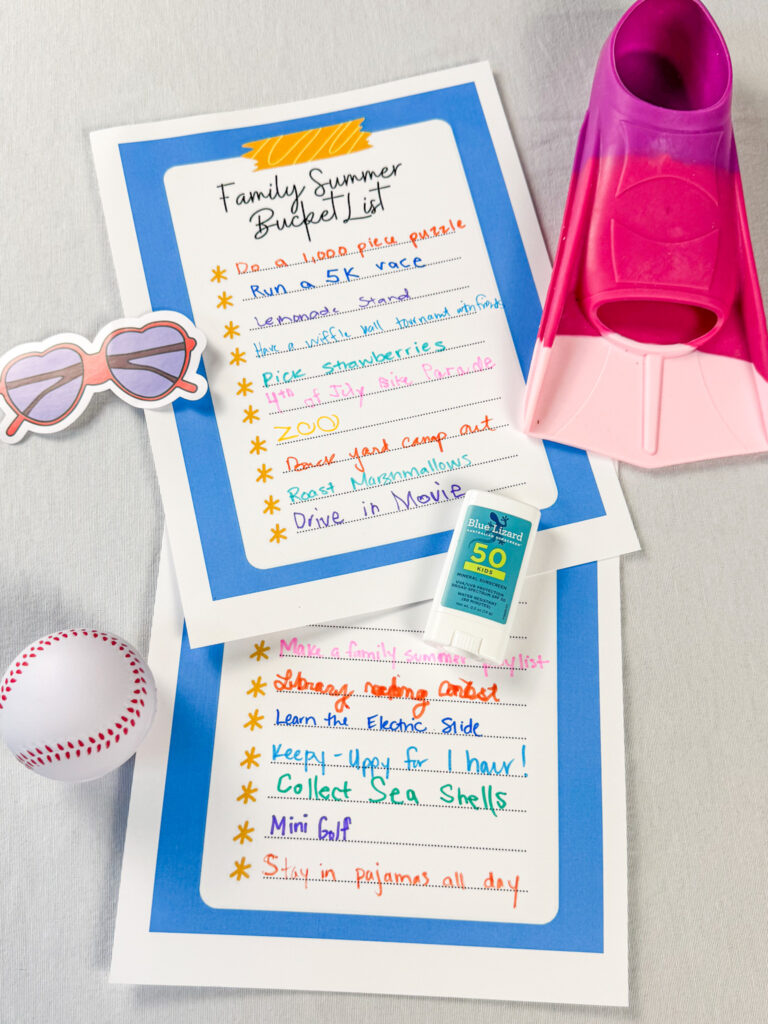 Family Summer
Bucket List
Do a 1,000 piece puzzle
Run a 5K race
Lemonade Stand
Have a wiffle ball tournament with friends
Pick Strawberries
4th of July Bike Parade
ZOO
Back yard camp out
Roast Marshmallows
Drive in Movie
Blue Lizard
AUSTRALIAN SUNSCREEN
50
KIDS
MINERAL SUNSCREEN
UVA/UVB PROTECTION
BROAD SPECTRUM SPF 50
WATER RESISTANT
(80 MINUTES)
Make a family summer playlist
Library reading contest
Learn the Electric Slide
Keepy-Uppy for 1 hour!
Collect Sea Shells
Mini Golf
Stay in pajamas all day